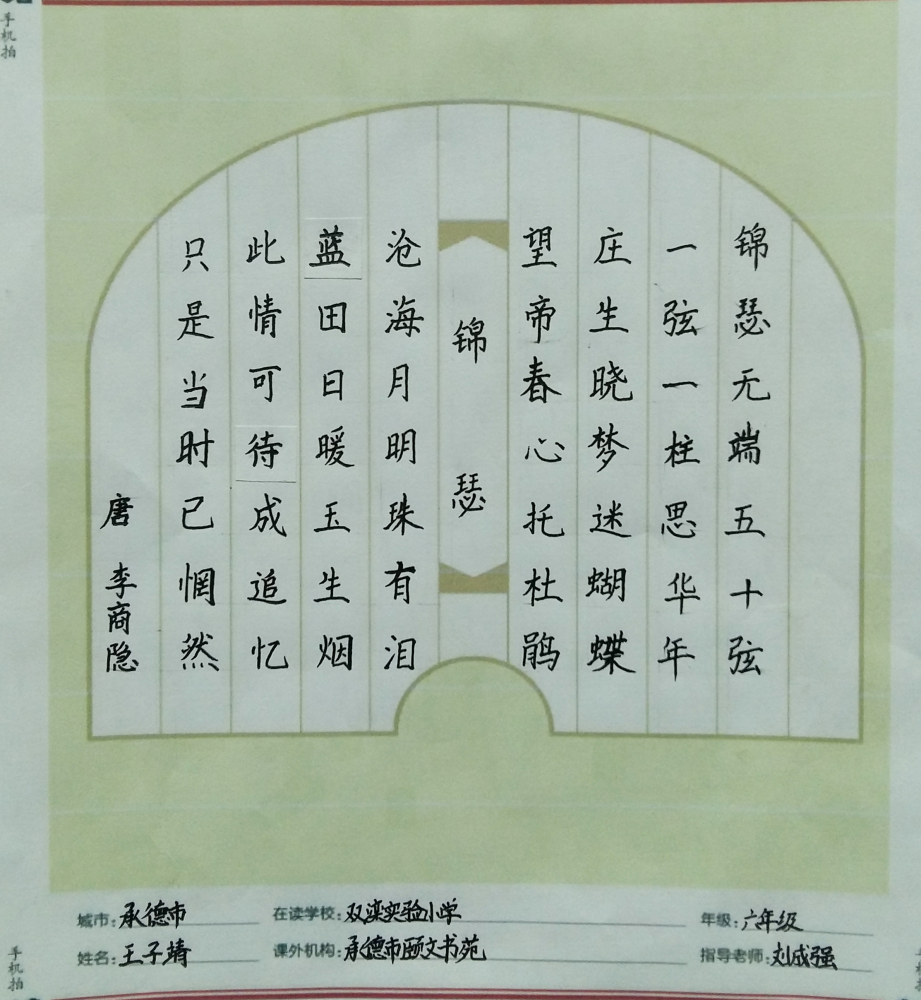 锦瑟无端五十弦
一弦一柱思华年
庄生晓梦迷蝴蝶
望帝春心托杜鹃
锦瑟
沧海月明珠有泪
蓝田日暖玉生烟
此情可待成追忆
只是当时已惘然
唐 李商隐
手机拍
手机拍
城市：承德市
在读学校：双滦实验小学
年级：六年级
姓名：王子靖
课外机构：承德市颐文书苑
指导老师：刘成强